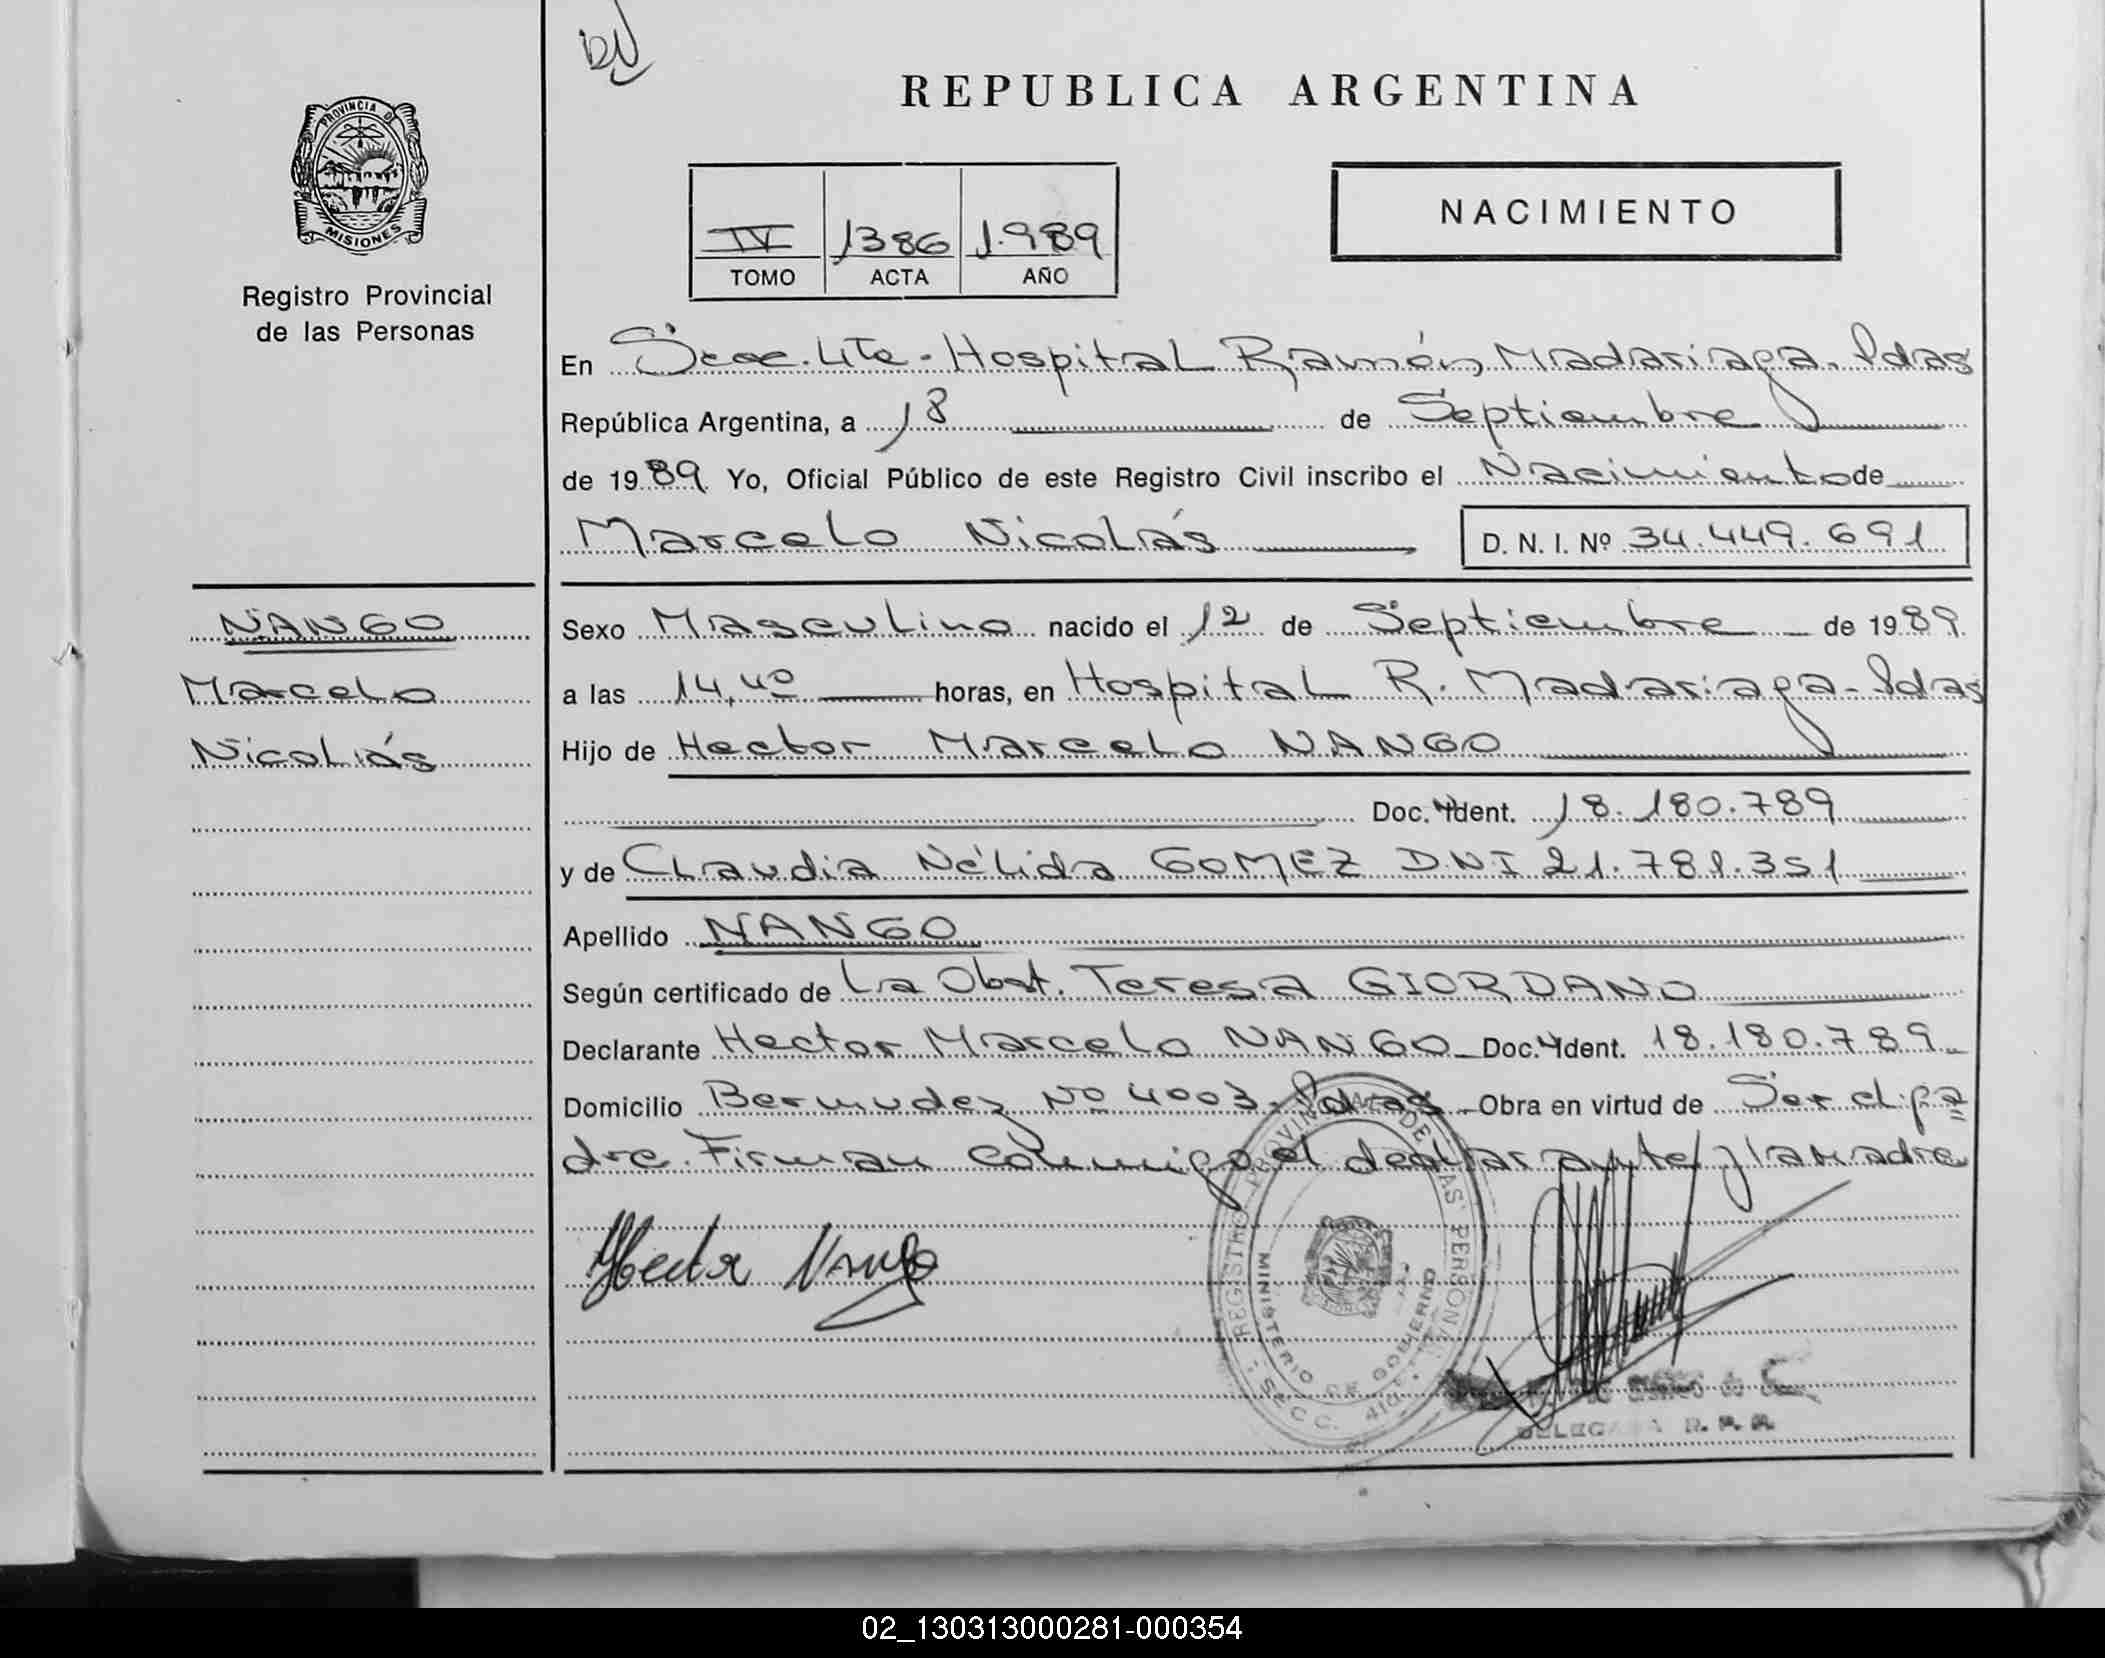 REPUBLICA ARGENTINA
PROVINCIA D
MISIONES
Registro Provincial
de las Personas
IV 1386 1.989
TOMO ACTA AÑO
NACIMIENTO
En Secc. 4ta - Hospital Ramón Madariaga. Pdas
República Argentina, a 18 de Septiembre
de 1989 Yo, Oficial Público de este Registro Civil inscribo el Nacimiento de
Marcelo Nicolás D. N. I. Nº 34.449.691
NANGO
Marcelo
Nicolás
Sexo Masculino nacido el 12 de Septiembre de 1989
a las 14,40 horas, en Hospital R. Madariaga - Pdas
Hijo de Hector Marcelo NANGO
Doc. Ident. 18.180.789
y de Claudia Nélida GOMEZ DNI 21.781.351
Apellido NANGO
Según certificado de La Obst. Teresa GIORDANO
Declarante Hector Marcelo NANGO Doc. Ident. 18.180.789
Domicilio Bermudez No 4003. Pdas Obra en virtud de Ser el pa
dre. Firman conmigo el declarante y la madre
Hector Nango
REGISTRO PROVINCIAL DE LAS PERSONAS
MINISTERIO DE GOBIERNO
SECC. 4ta
DELEGADA R. P. P.
02_130313000281-000354